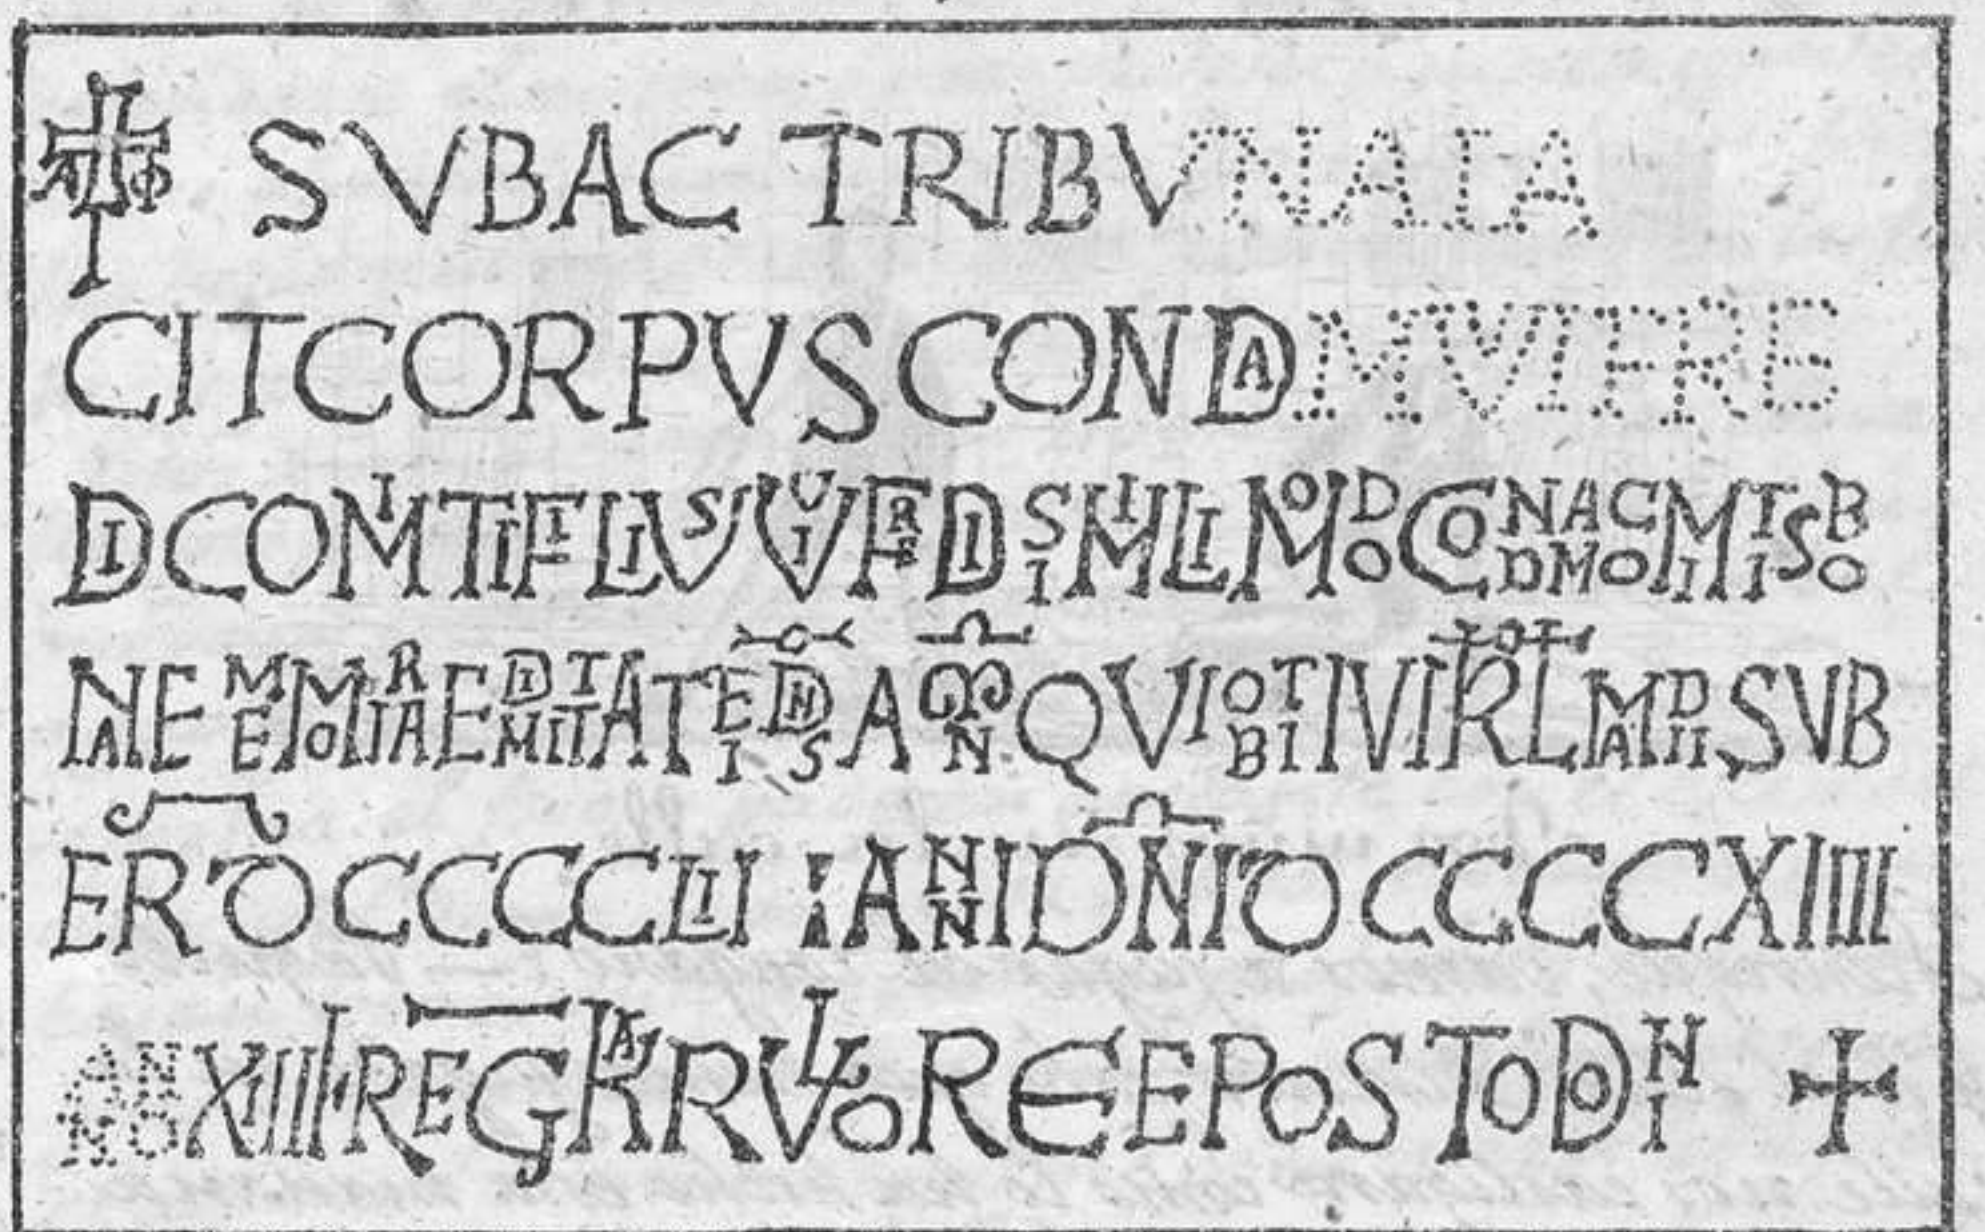 A ω SVBAC TRIBVNAIA
CITCORPVS CONDAMVIFRE
DI COMITI FILIVS VVIFREDI SIMILI MODO CONDAM COMITIS BO
NAE MEMORIAE DIMITTAT EI DNS AMN QVI OBIIT VI KL MADII SVB
ER DCCCCLII ANNI DNI DCCCCXIIII
ANNO XIIII REG KARVLO REE POST ODONI +